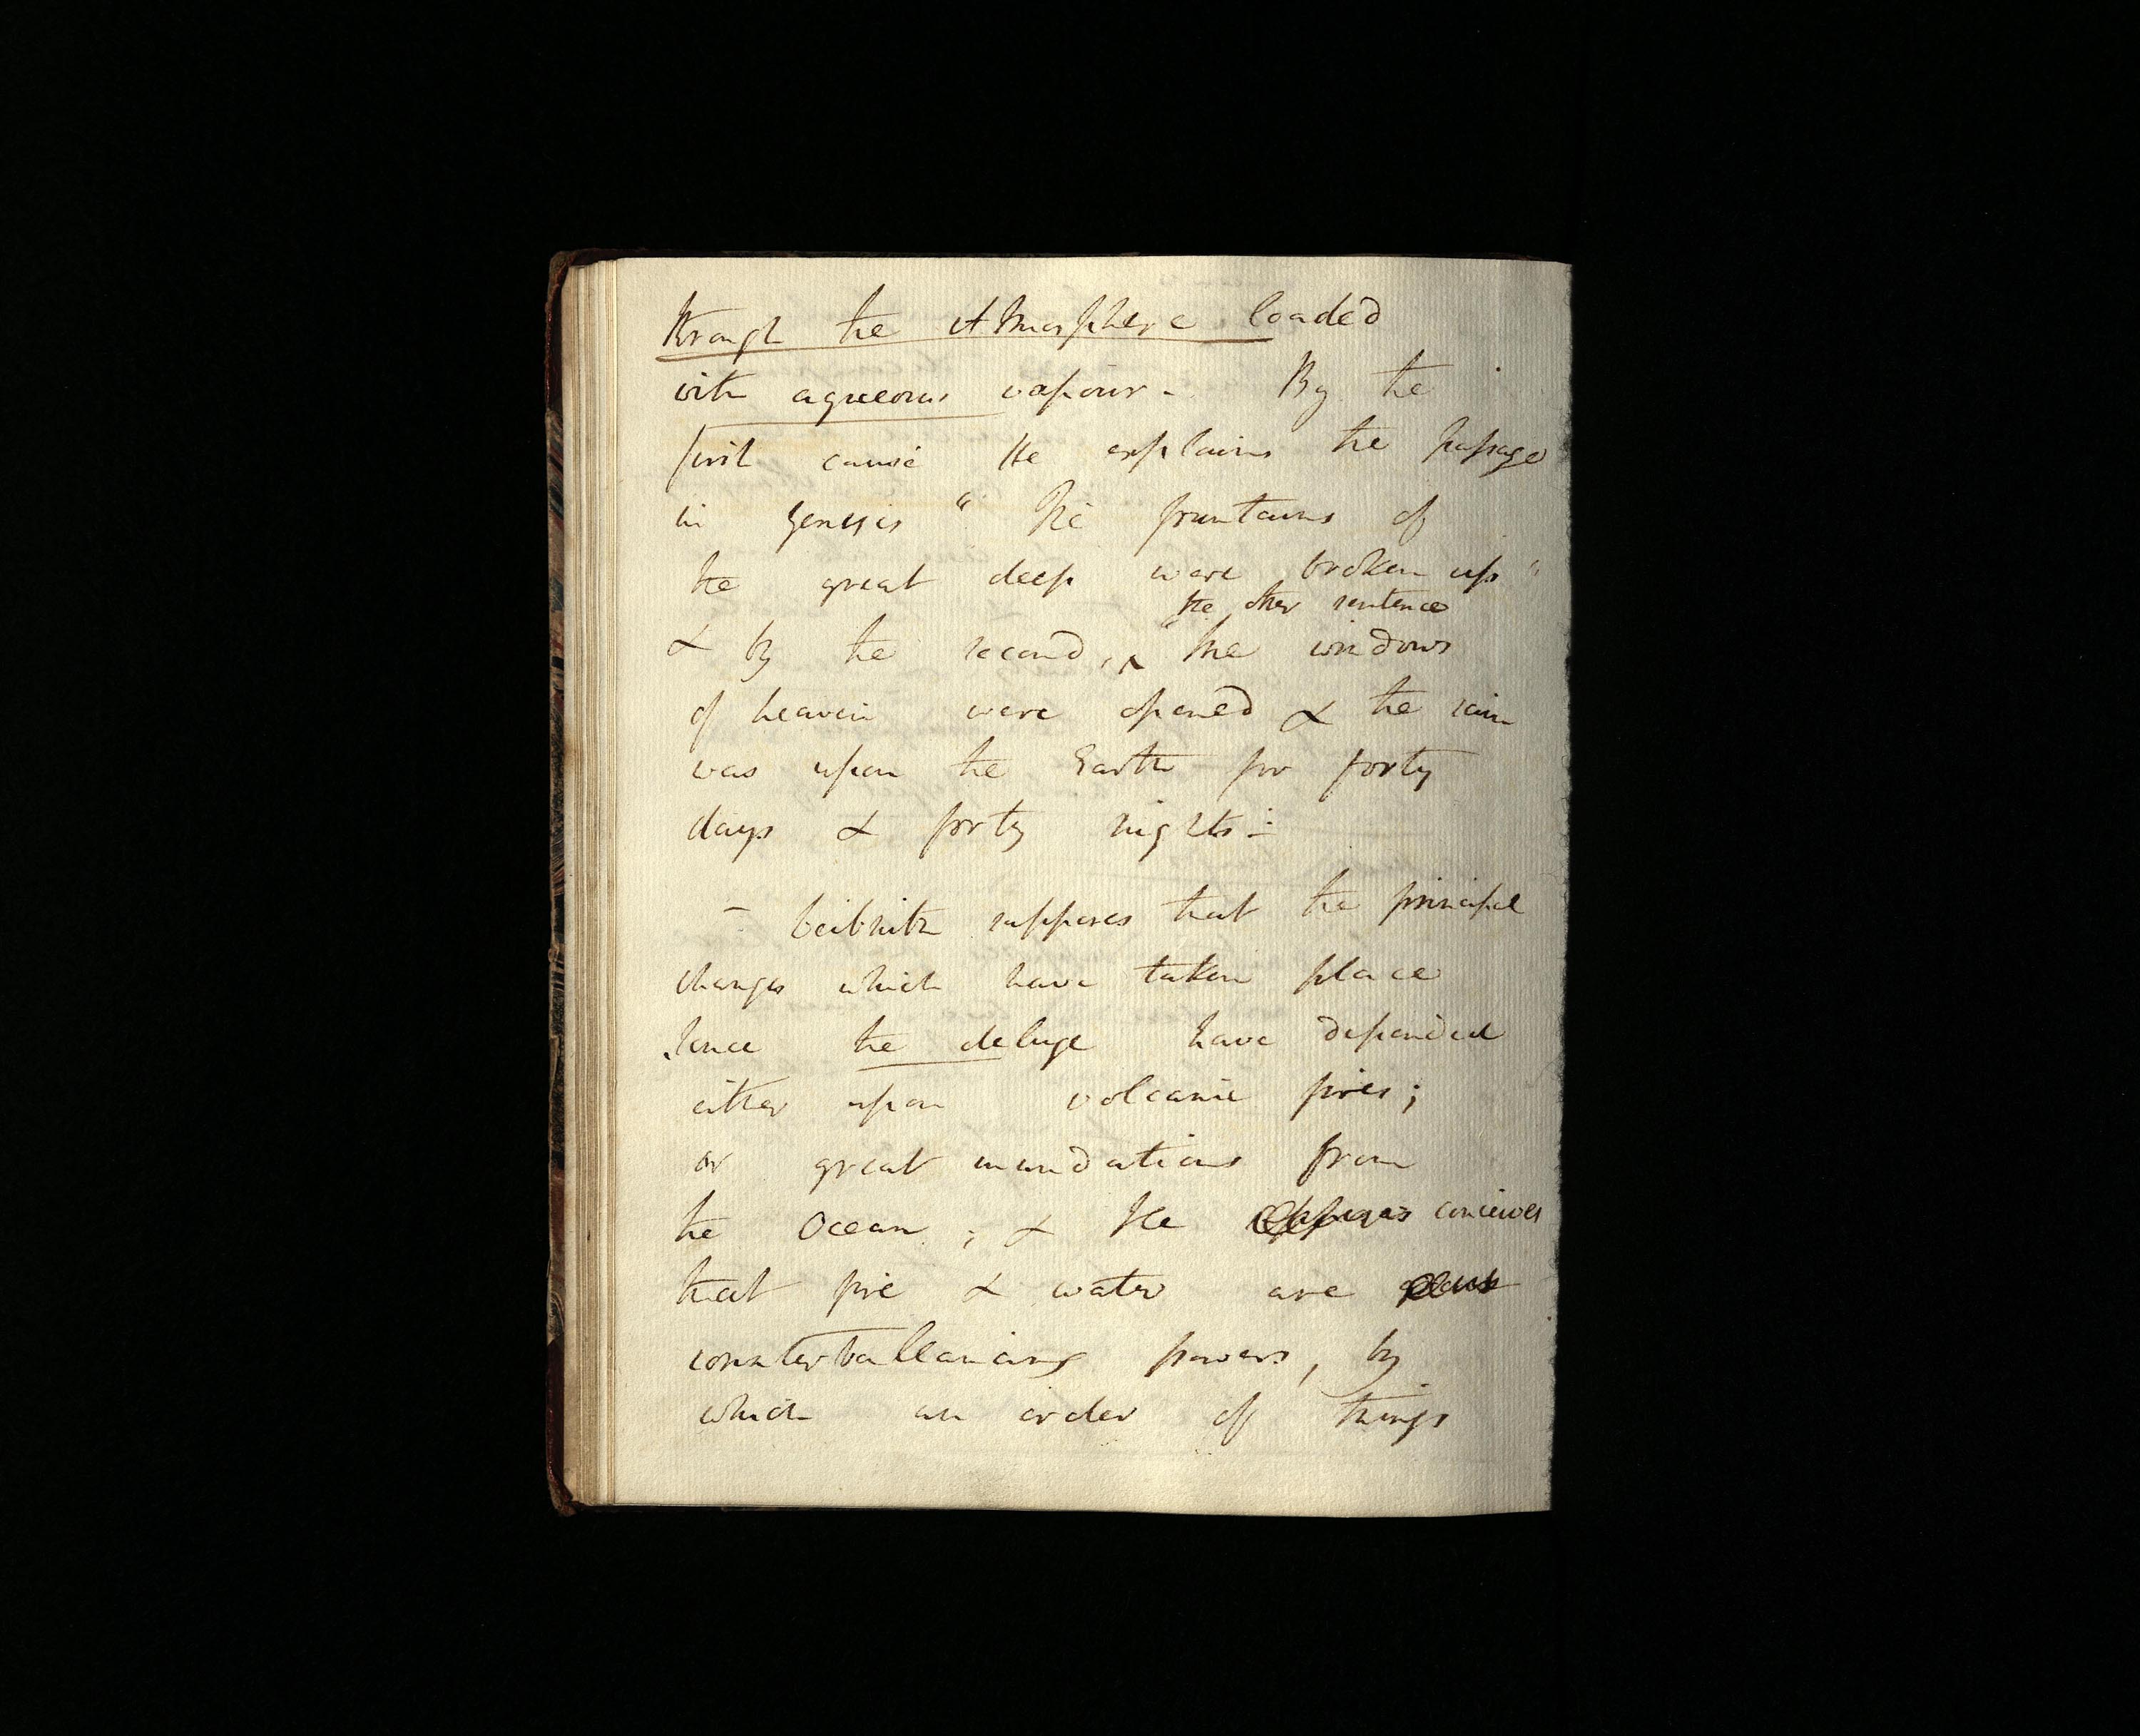 through the Atmosphere loaded
with aqueous vapour. By the
first cause He explains the passage
in Genesis "The fountains of
the great deep were broken up"
the other sentence
& by the second, ‸ "the windows
of heaven were opened & the rain
was upon the Earth for forty
days & forty nights :-
- Leibnitz supposes that the principal
changes which have taken place
since the deluge have depended
either upon volcanic fires;
or great inundations from
the Ocean; & He conceives
that fire & water are
counterballancing powers, by
which an order of things